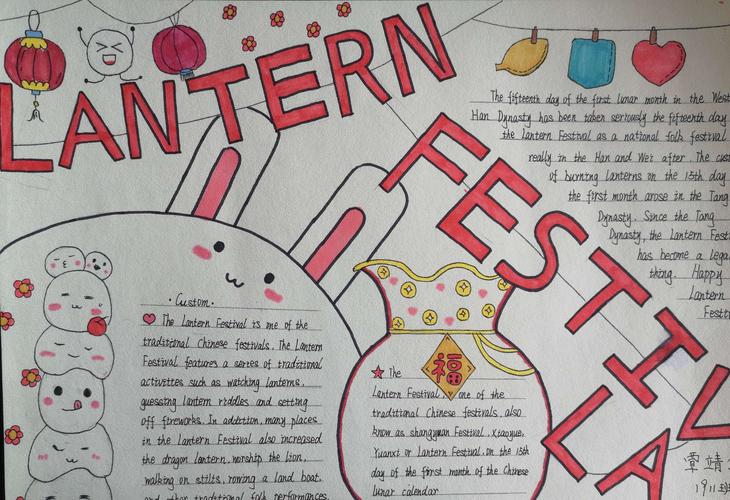 LANTERN
FESTIV
LA
The fifteenth day of the first lunar month in the West
Han Dynasty has been taken seriously the fifteenth day
the Lantern Festival as a national folk festival
really in the Han and Wei after. The cus
of burning lanterns on the 15th day
the first month arose in the Tang
Dynasty. Since the Tang
Dynasty, the Lantern Fest
has become a lega
thing. Happy
Lantern
Festi
·Custom·
The Lantern Festival is one of the
traditional Chinese festivals. The Lantern
Festival features a series of traditional
activities such as watching lanterns,
guessing lantern riddles and setting
off fireworks. In addition, many places
in the Lantern Festival also increased
the dragon lantern, worship the lion,
walking on stilts, rowing a land boat,
and other traditional folk performances.
福
★ The
Lantern Festival, one of the
traditional Chinese festivals, also
know as shangyuan Festival, Xiaoyue,
Yuanxi or Lantern Festival, on the 15th
day of the first month of the Chinese
lunar calendar
覃靖
1911班